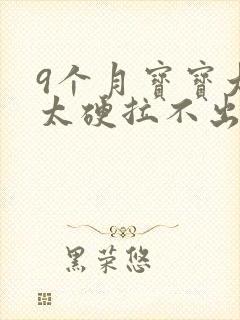 9个月宝宝大
太硬拉不出
黑荣悠